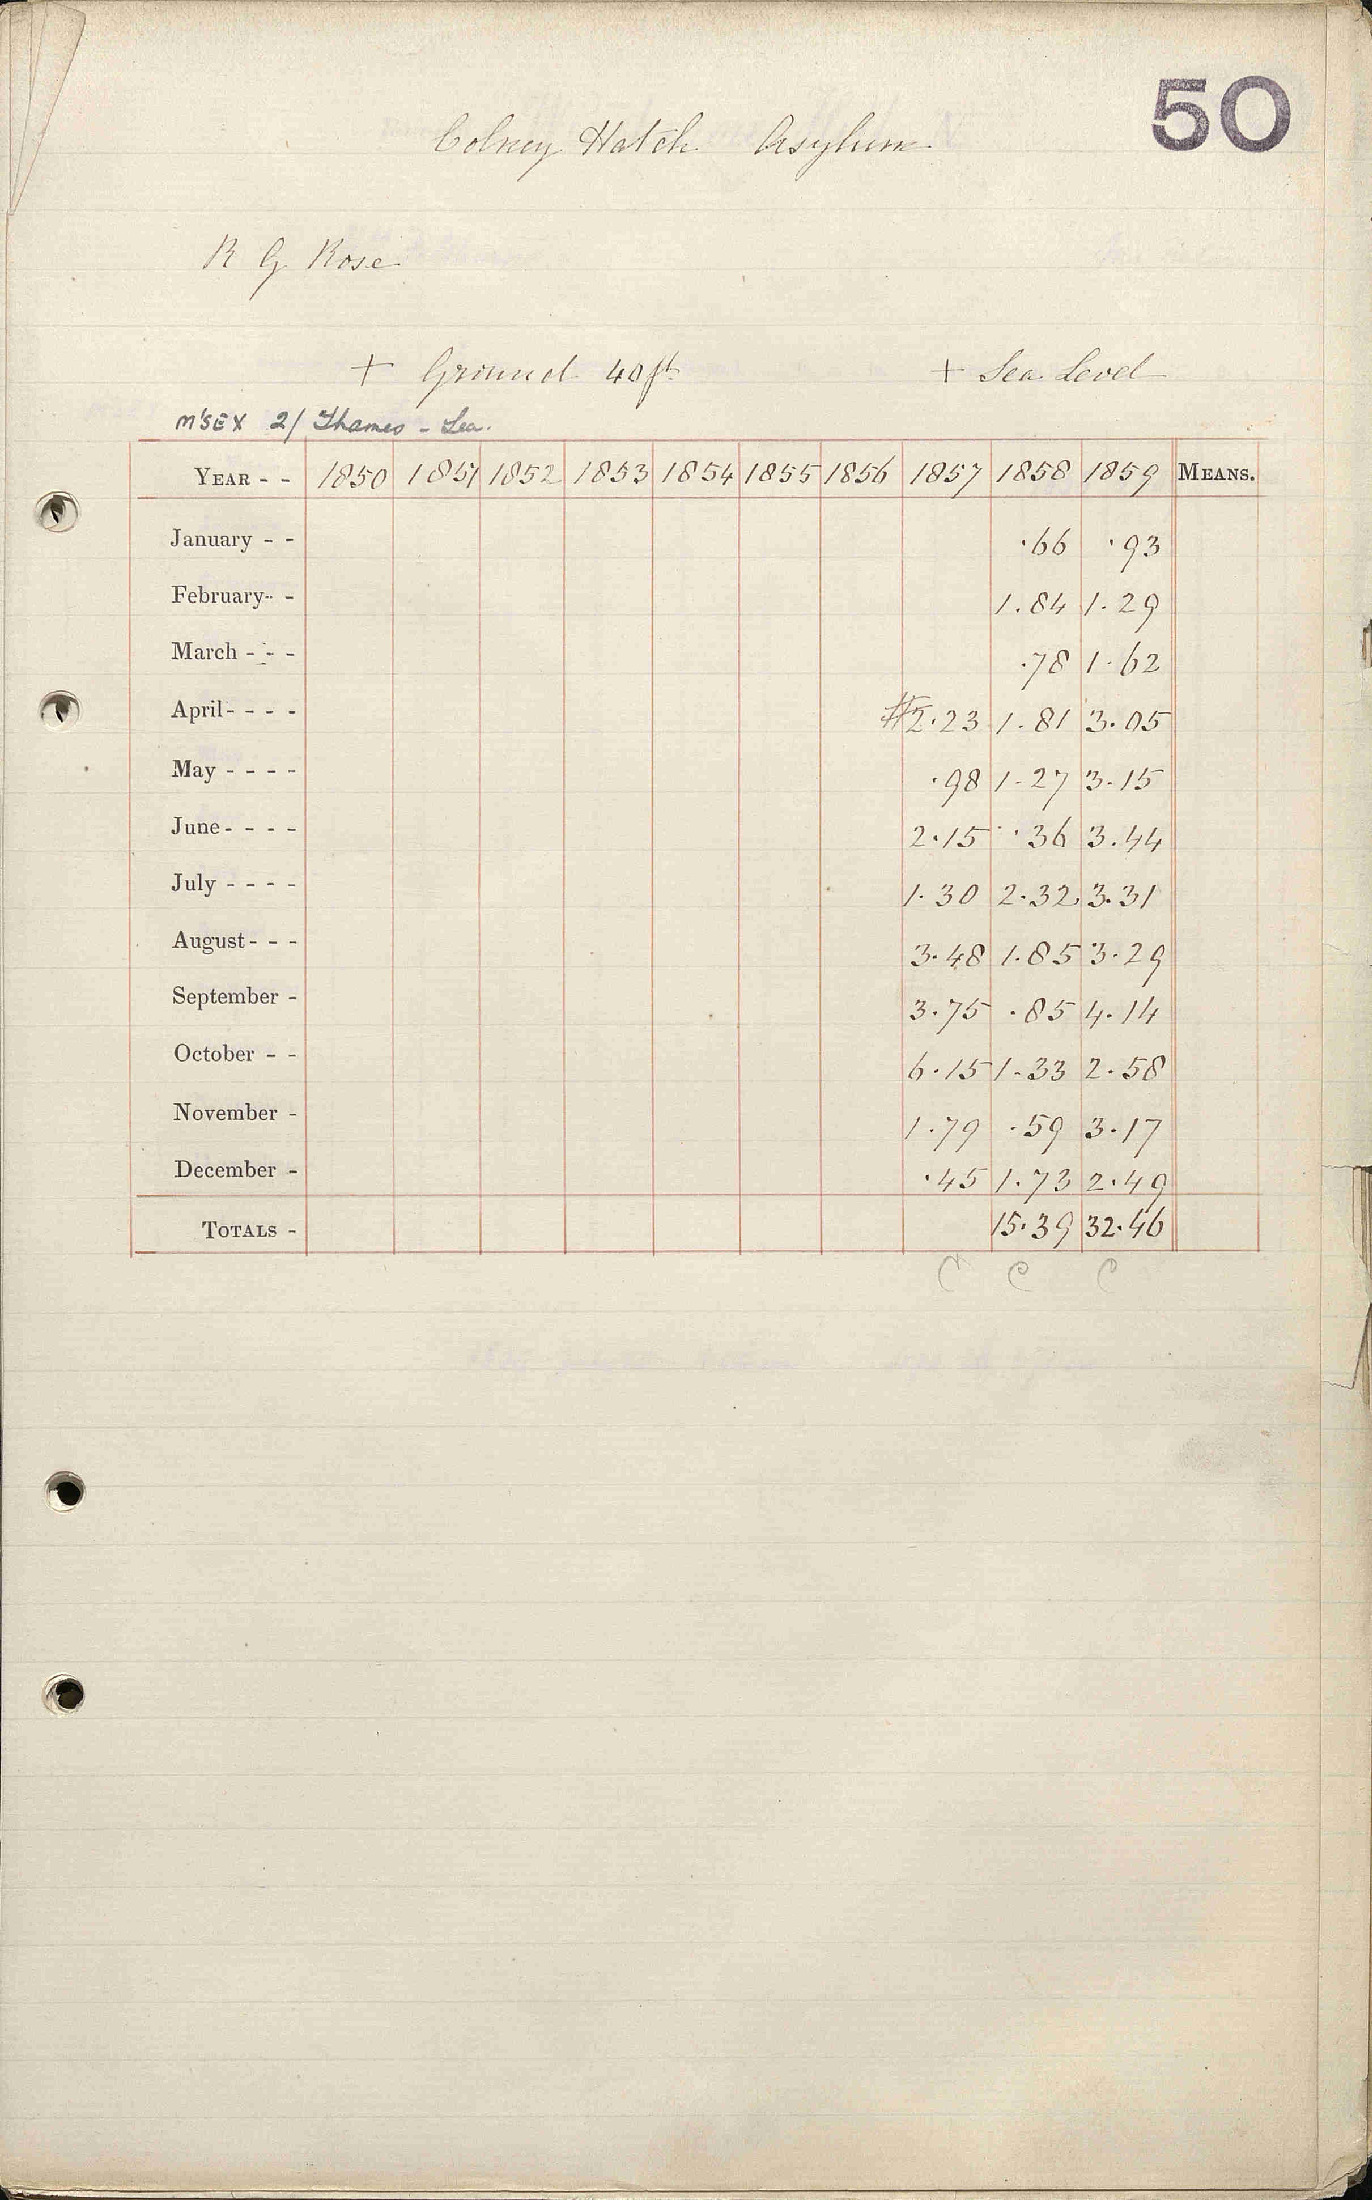 50
Colney Hatch Asylum
R G Rose
+ Ground 40 ft + Sea Level
M'SEX 2/ Thames - Lea.
YEAR - - 1850 1851 1852 1853 1854 1855 1856 1857 1858 1859 MEANS.
January - - ·66 ·93
February - - 1.84 1.29
March - - - ·78 1.62
April - - - - #2.23 1.81 3.05
May - - - - ·98 1.27 3.15
June - - - - 2.15 ·36 3.44
July - - - - 1.30 2.32 3.31
August - - - 3.48 1.85 3.29
September - 3.75 ·85 4.14
October - - 6.15 1.33 2.58
November - 1.79 ·59 3.17
December - ·45 1.73 2.49
TOTALS - 15.39 32.46
C C C